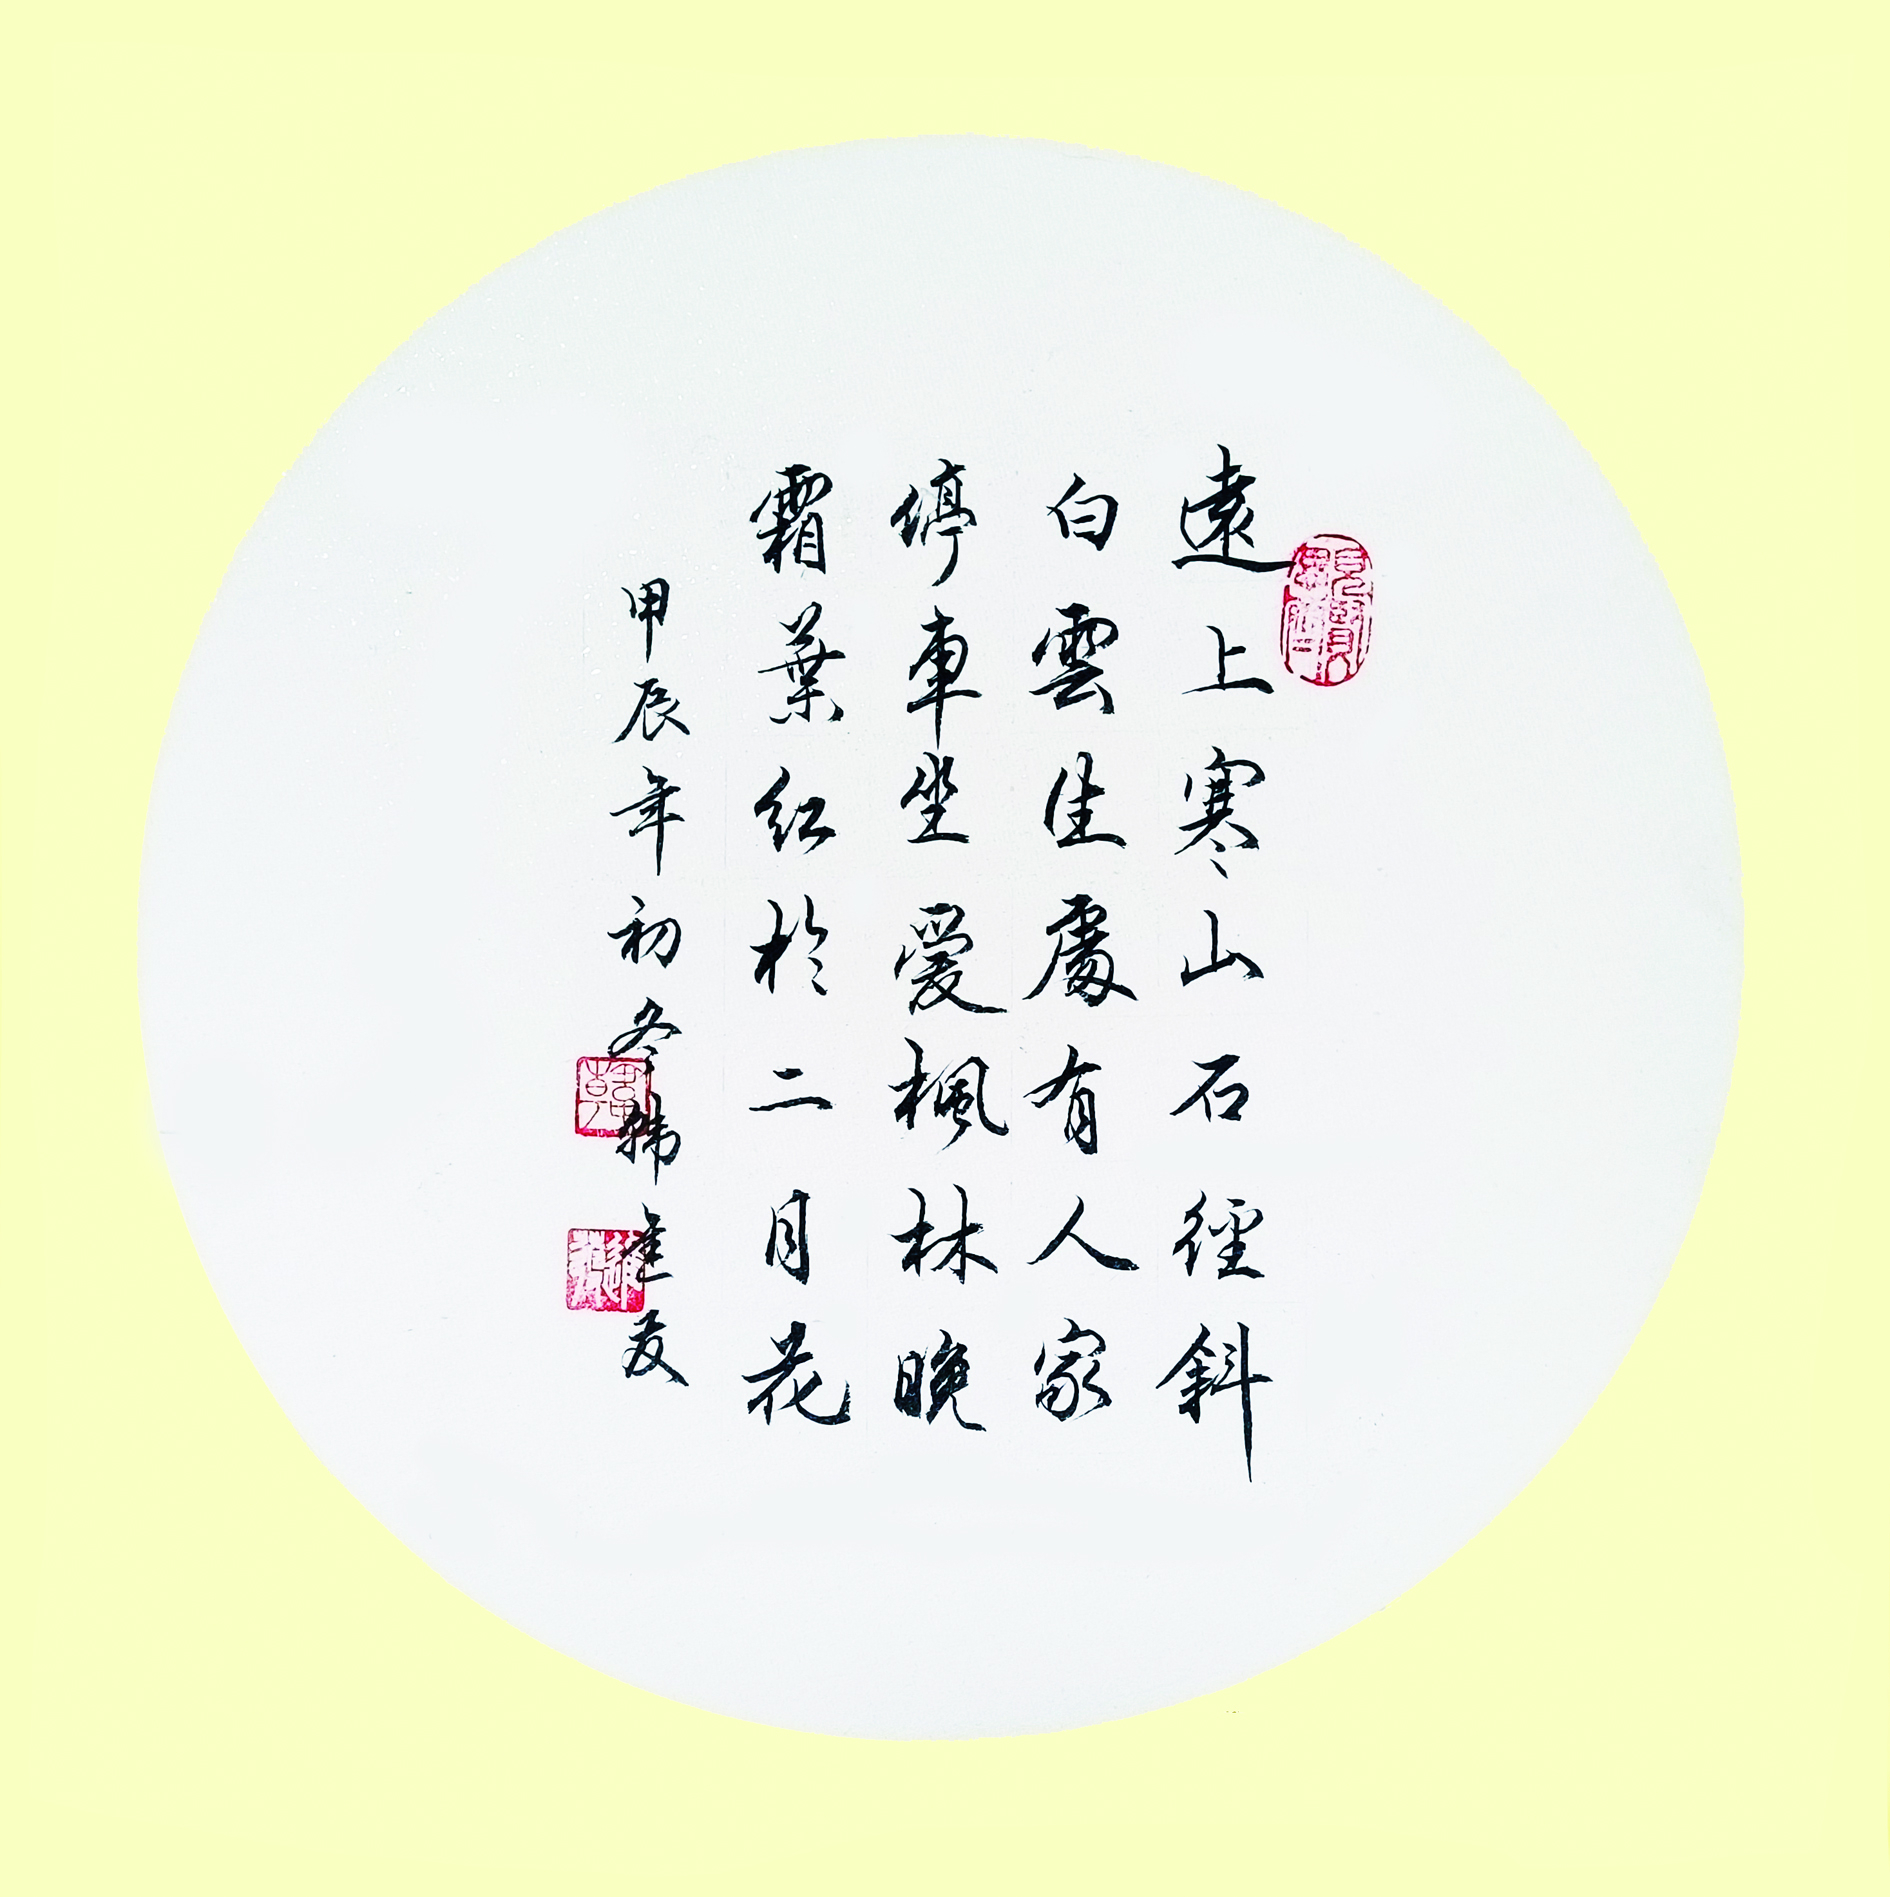 遠上寒山石徑斜
白雲生處有人家
停車坐愛楓林晚
霜葉紅於二月花
甲辰年初冬韓
韓